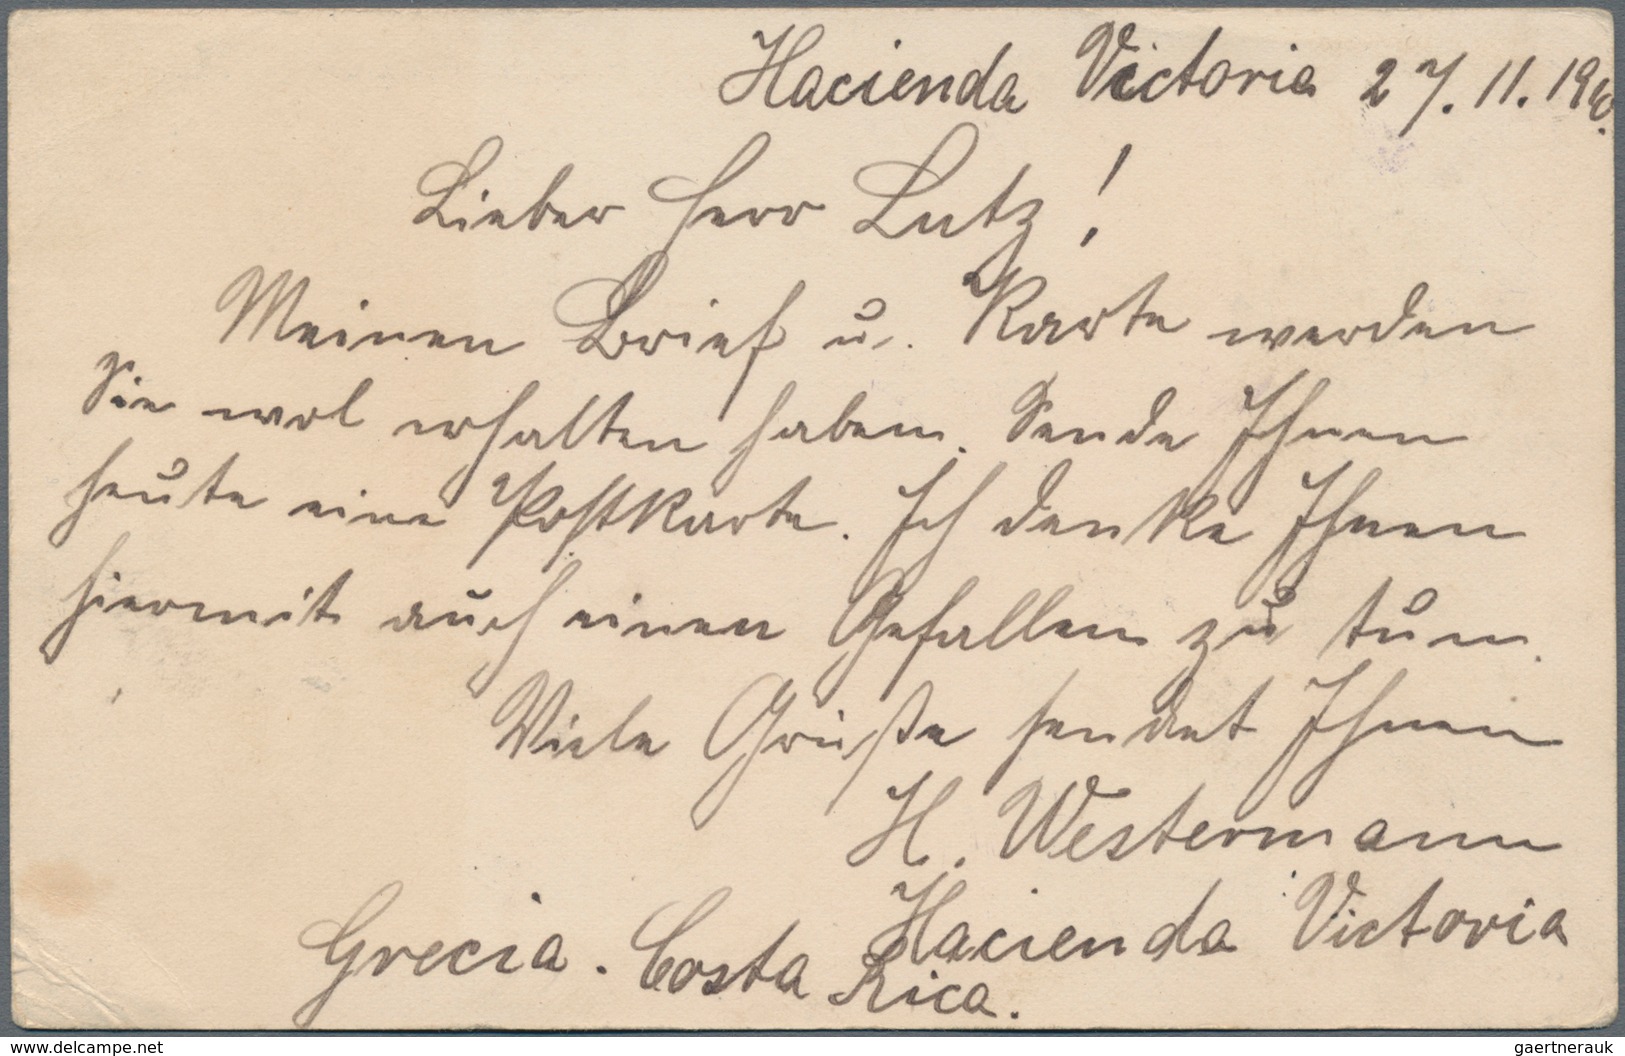 Hacienda Victoria 27. 11. 190.
Lieber Herr Lutz!
Meinen Brief u. Karte werden
Sie wol erhalten haben. Sende Ihnen
heute eine Postkarte. Ich denke Ihnen
hiermit auch einen Gefallen zu tun.
Viele Grüße sendet Ihnen
H. Westermann
Hacienda Victoria
Grecia. Costa Rica.
www.delcampe.net
gaertnerauk